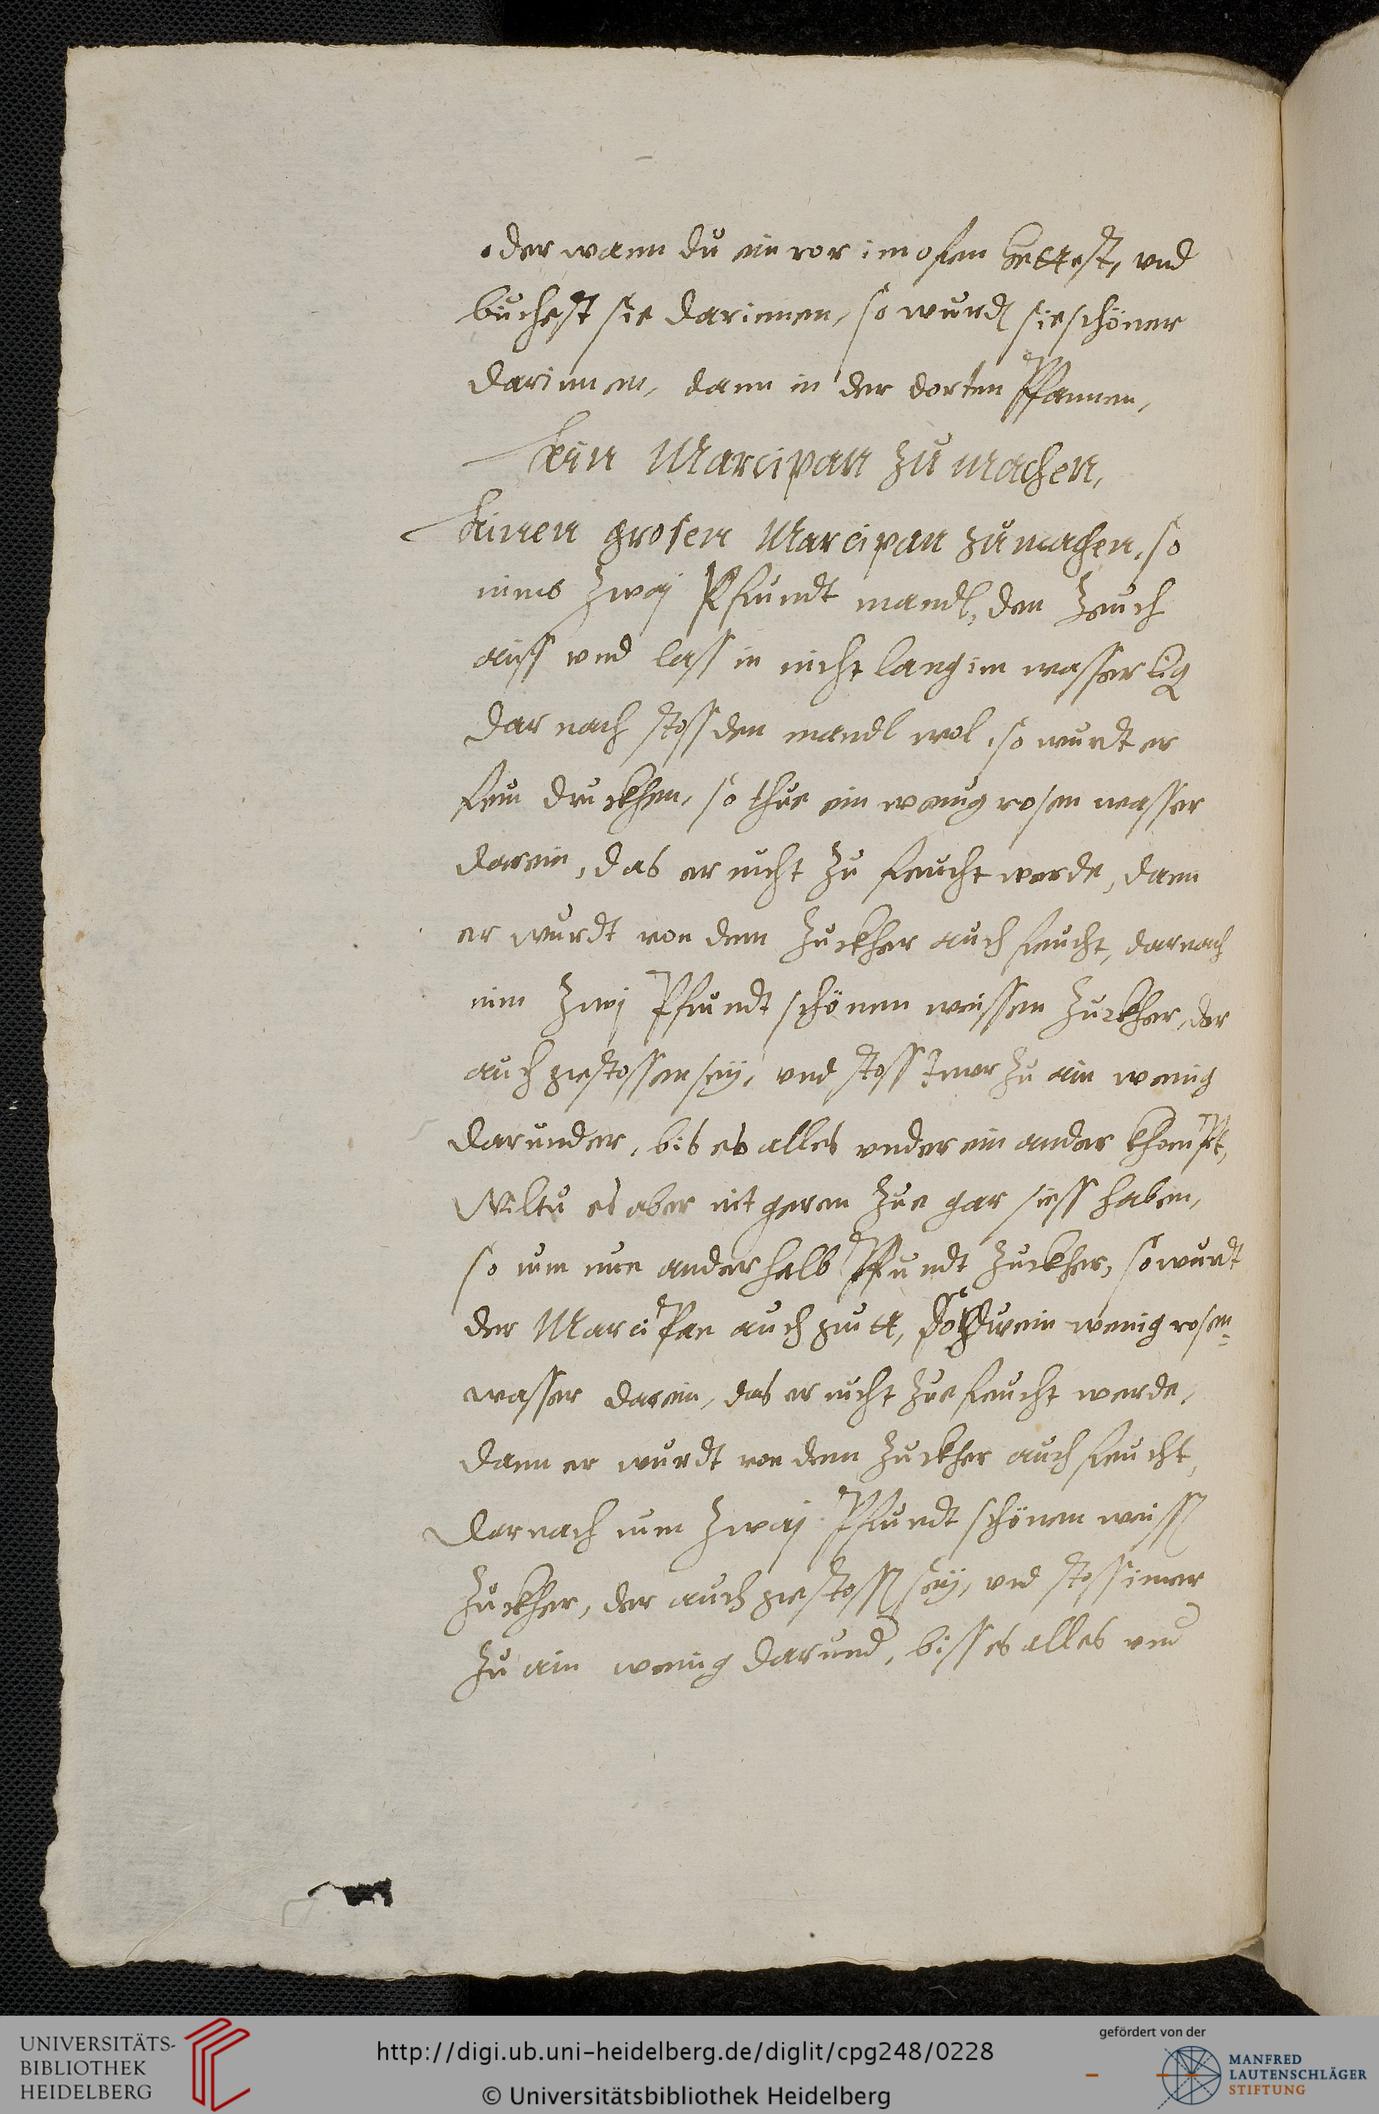 oder wann du ein ror im ofen hettest, vnd
buchest sie darinnen, so wurd sie schöner
darinnen, dann in der dorten Pfannen,
Ein Marcipan zu machen,
Einen grosen Marcipan zu machen, so
nims Zwaj Pfundt mandl, den Zeuch
auss vnd lass in nicht lang im wasser lig
Dar nach stoss den mandl wol, so wurdt er
fein druckhen, so thue ein wenig rosen wasser
darein, das er nicht zu feucht werde, dann
er wurdt von dem Zuckher auch feucht, darnach
nim Zwj Pfundt schönen weissen Zuckher, der
auch gestossen seÿ, vnd stoss Imer zu ain wenig
darunder, bis es alles vnder ein ander khumpt,
Wiltu es aber nit geren Zue gar siess haben,
so nim nur anderhalb Pfundt Zuckher, so wurdt
der MarciPan auch guett, so thu ein wenig rosen-
wasser darein, das er nicht zue feucht werde,
dann er wurdt von dem Zuckher auch feucht,
Darnach nim Zwaj Pfundt schönen weiss
Zuckher, der auch gestoss seÿ, vnd stoss imer
Zu ain wenig darund, biss es alles vnd
UNIVERSITÄTS-
BIBLIOTHEK
HEIDELBERG
http://digi.ub.uni-heidelberg.de/diglit/cpg248/0228
© Universitätsbibliothek Heidelberg
gefördert von der
MANFRED
LAUTENSCHLÄGER
STIFTUNG